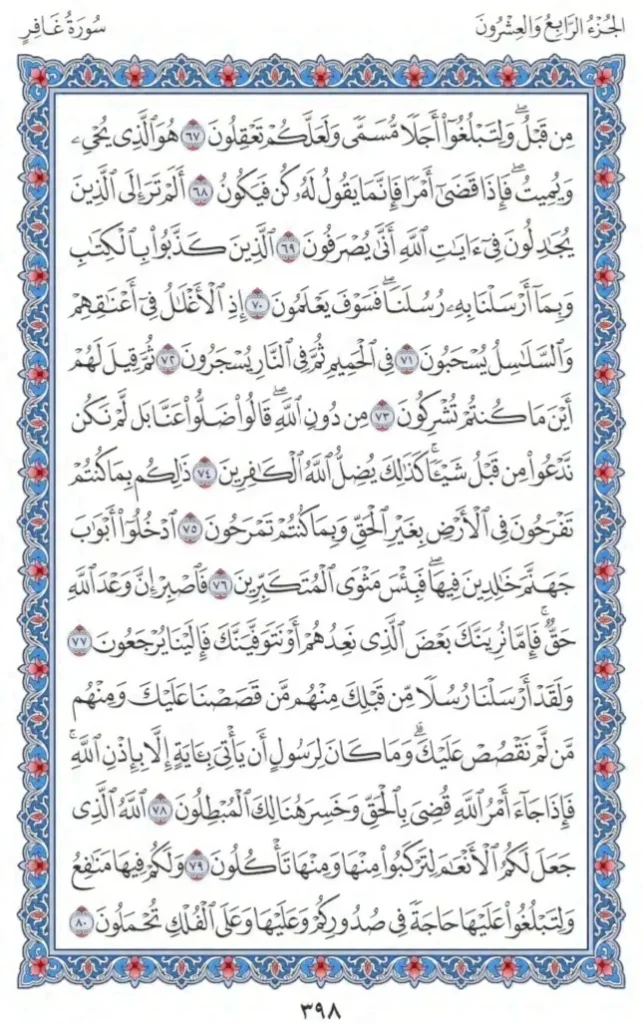 الجزء الرابع والعشرون
سورة غافر
مِن قَبْلُۖ وَلِتَبْلُغُوٓا۟ أَجَلًا مُّسَمًّى وَلَعَلَّكُمْ تَعْقِلُونَ ٦٧ هُوَ ٱلَّذِى يُحْىِۦ
وَيُمِيتُۖ فَإِذَا قَضَىٰٓ أَمْرًا فَإِنَّمَا يَقُولُ لَهُۥ كُن فَيَكُونُ ٦٨ أَلَمْ تَرَ إِلَى ٱلَّذِينَ
يُجَٰدِلُونَ فِىٓ ءَايَٰتِ ٱللَّهِ أَنَّىٰ يُصْرَفُونَ ٦٩ ٱلَّذِينَ كَذَّبُوا۟ بِٱلْكِتَٰبِ
وَبِمَآ أَرْسَلْنَا بِهِۦ رُسُلَنَاۖ فَسَوْفَ يَعْلَمُونَ ٧٠ إِذِ ٱلْأَغْلَٰلُ فِىٓ أَعْنَٰقِهِمْ
وَٱلسَّلَٰسِلُ يُسْحَبُونَ ٧١ فِى ٱلْحَمِيمِ ثُمَّ فِى ٱلنَّارِ يُسْجَرُونَ ٧٢ ثُمَّ قِيلَ لَهُمْ
أَيْنَ مَا كُنتُمْ تُشْرِكُونَ ٧٣ مِن دُونِ ٱللَّهِۖ قَالُوا۟ ضَلُّوا۟ عَنَّا بَل لَّمْ نَكُن
نَّدْعُوا۟ مِن قَبْلُ شَيْـًٔاۚ كَذَٰلِكَ يُضِلُّ ٱللَّهُ ٱلْكَٰفِرِينَ ٧٤ ذَٰلِكُم بِمَا كُنتُمْ
تَفْرَحُونَ فِى ٱلْأَرْضِ بِغَيْرِ ٱلْحَقِّ وَبِمَا كُنتُمْ تَمْرَحُونَ ٧٥ ٱدْخُلُوٓا۟ أَبْوَٰبَ
جَهَنَّمَ خَٰلِدِينَ فِيهَاۖ فَبِئْسَ مَثْوَى ٱلْمُتَكَبِّرِينَ ٧٦ فَٱصْبِرْ إِنَّ وَعْدَ ٱللَّهِ
حَقٌّۚ فَإِمَّا نُرِيَنَّكَ بَعْضَ ٱلَّذِى نَعِدُهُمْ أَوْ نَتَوَفَّيَنَّكَ فَإِلَيْنَا يُرْجَعُونَ ٧٧
وَلَقَدْ أَرْسَلْنَا رُسُلًا مِّن قَبْلِكَ مِنْهُم مَّن قَصَصْنَا عَلَيْكَ وَمِنْهُم
مَّن لَّمْ نَقْصُصْ عَلَيْكَۗ وَمَا كَانَ لِرَسُولٍ أَن يَأْتِىَ بِـَٔايَةٍ إِلَّا بِإِذْنِ ٱللَّهِۚ
فَإِذَا جَآءَ أَمْرُ ٱللَّهِ قُضِىَ بِٱلْحَقِّ وَخَسِرَ هُنَالِكَ ٱلْمُبْطِلُونَ ٧٨ ٱللَّهُ ٱلَّذِى
جَعَلَ لَكُمُ ٱلْأَنْعَٰمَ لِتَرْكَبُوا۟ مِنْهَا وَمِنْهَا تَأْكُلُونَ ٧٩ وَلَكُمْ فِيهَا مَنَٰفِعُ
وَلِتَبْلُغُوا۟ عَلَيْهَا حَاجَةً فِى صُدُورِكُمْ وَعَلَيْهَا وَعَلَى ٱلْفُلْكِ تُحْمَلُونَ ٨٠
٣٩٨